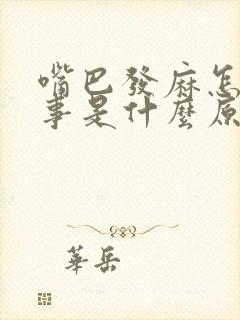 嘴巴發麻怎
事是什麼原
華岳